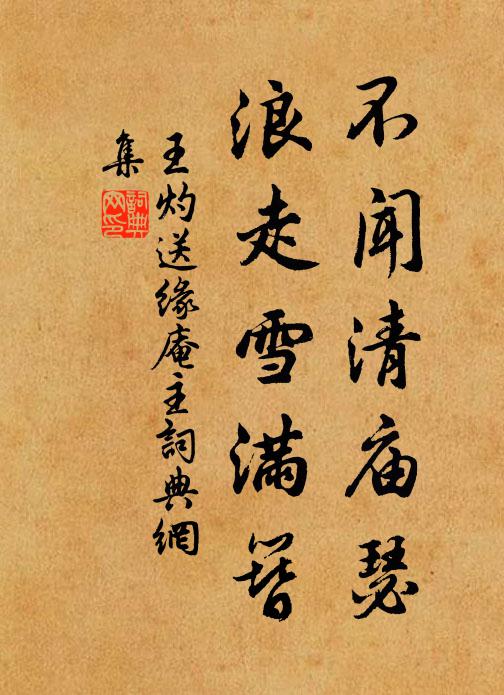 不闻清庙瑟
浪走雪满簪
王灼送缘庵主詞典網
集
詞典網印